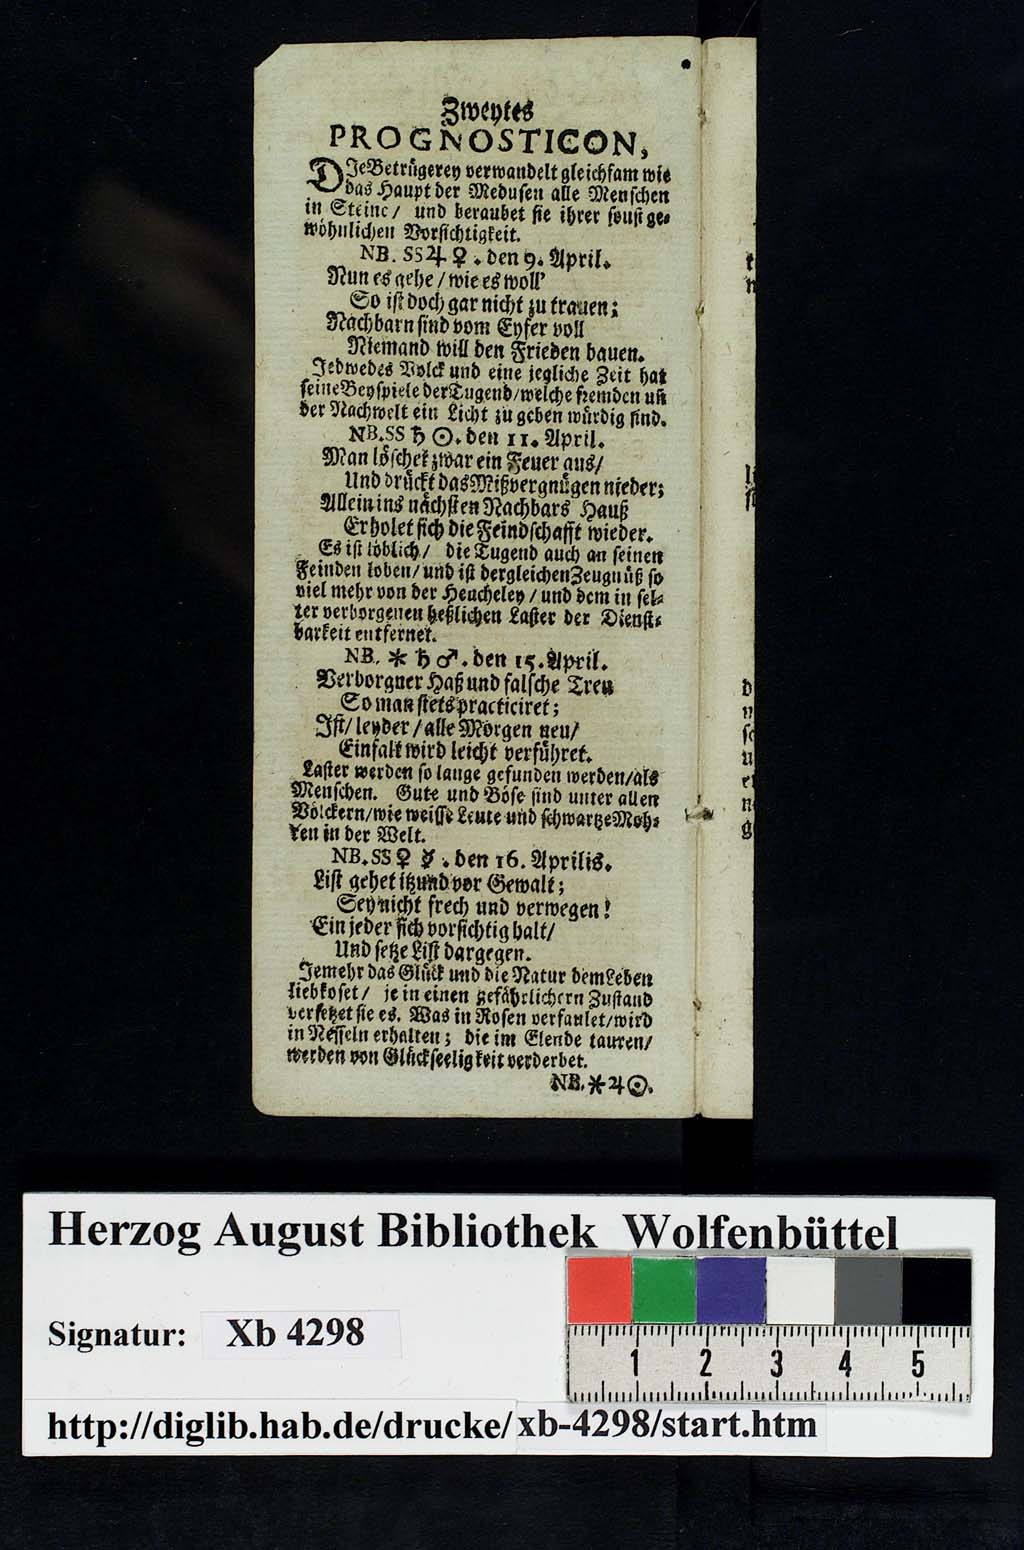 Zweytes
PROGNOSTICON,
DIe Betrügerey verwandelt gleichsam wie
das Haupt der Medusen alle Menschen
in Steine / und beraubet sie ihrer sonst ge-
wöhnlichen Vorsichtigkeit.
NB. SS ♃ ♀. den 9. April.
Nun es gehe / wie es woll'
So ist doch gar nicht zu trauen;
Nachbarn sind vom Eyfer voll
Niemand will den Frieden bauen.
Jedwedes Volck und eine jegliche Zeit hat
seine Beyspiele der Tugend / welche fremden uñ
der Nachwelt ein Licht zu geben würdig sind.
NB. SS ♄ ☉. den 11. April.
Man löschet zwar ein Feuer aus /
Und drückt das Mißvergnügen nieder;
Allein ins nächsten Nachbars Hauß
Erholet sich die Feindschafft wieder.
Es ist löblich / die Tugend auch an seinen
Feinden loben / und ist dergleichen Zeugnüß so
viel mehr von der Heucheley / und dem in sel-
ter verborgenen heßlichen Laster der Dienst-
barkeit entfernet.
NB. ⚹ ♄ ♂. den 15. April.
Verborgner Haß und falsche Treu
So man stets practiciret;
Ist / leyder / alle Morgen neu /
Einfalt wird leicht verführet.
Laster werden so lange gefunden werden / als
Menschen. Gute und Böse sind unter allen
Völckern / wie weisse Leute und schwartze Moh-
ren in der Welt.
NB. SS ♀ ☿. den 16. Aprilis.
List gehet itzund vor Gewalt;
Sey nicht frech und verwegen!
Ein jeder sich vorsichtig halt /
Und setze List dargegen.
Jemehr das Glück und die Natur dem Leben
liebkoset / je in einen gefährlichern Zustand
versetzet sie es. Was in Rosen verfaulet / wird
in Nesseln erhalten; die im Elende tauren /
werden von Glückseeligkeit verderbet.
NB. ⚹ ♃ ☉.
Herzog August Bibliothek Wolfenbüttel
Signatur: Xb 4298
1 2 3 4 5
http://diglib.hab.de/drucke/xb-4298/start.htm